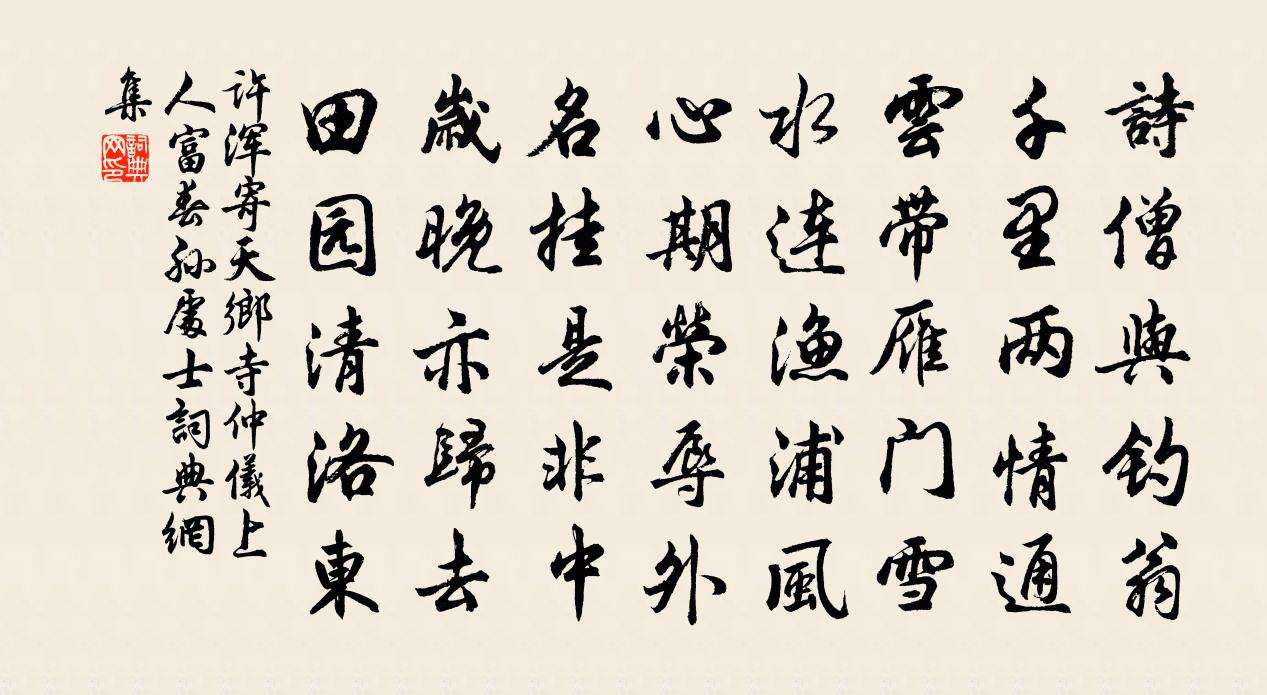 詩僧與釣翁
千里两情通
雲带雁门雪
水连漁浦風
心期榮辱外
名挂是非中
歳晚亦歸去
田园清洛東
许浑寄天鄉寺仲儀上
人富春孙處士詞典網
集
詞典
网印